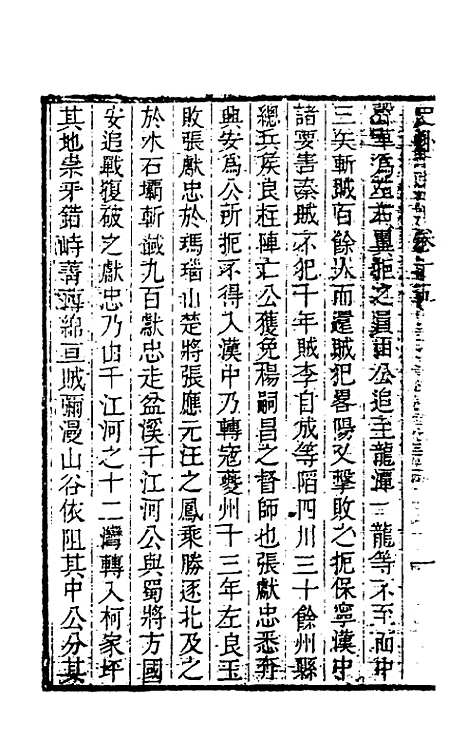 軍為左右翼拒之公追至龍潭一龍等不至而中
三矢斬賊百餘人而還賊犯畧陽又擊敗之扼保寧漢中
諸要害秦賊不犯十年賊李自成等陷四川三十餘州縣
總兵侯良柱陣亡公獲免楊嗣昌之督師也張獻忠悉奔
興安為公所扼不得入漢中乃轉寇夔州十三年左良玉
敗張獻忠於瑪瑙山楚將張應元汪之鳳乘勝逐北及之
於水石壩斬馘九百獻忠走盆溪千江河公與蜀將方國
安追戰復破之獻忠乃由千江河之十二灣轉入柯家坪
其地崇牙錯峙菁薄綿亘賊彌漫山谷依阻其中公分其